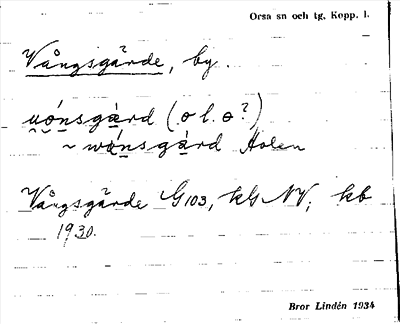 Orsa sn och tg, Kopp. l.
Vångsgärde, by.
uónsgàrd (o l. ɵ?)
~ wónsgàrd Holen
Vångsgärde G103, kG NV; kb
1930.
Bror Lindén 1934